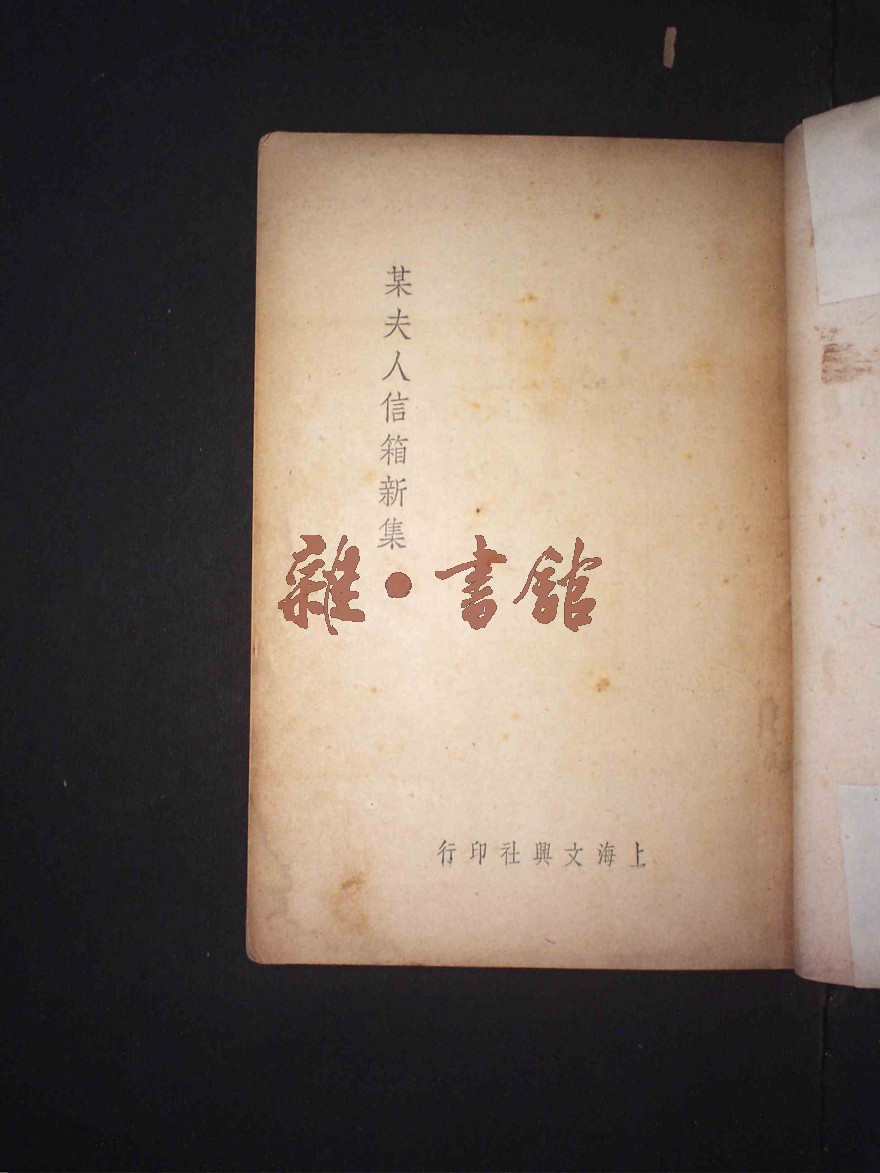 某夫人信箱新集
雜·書館
上海文興社印行